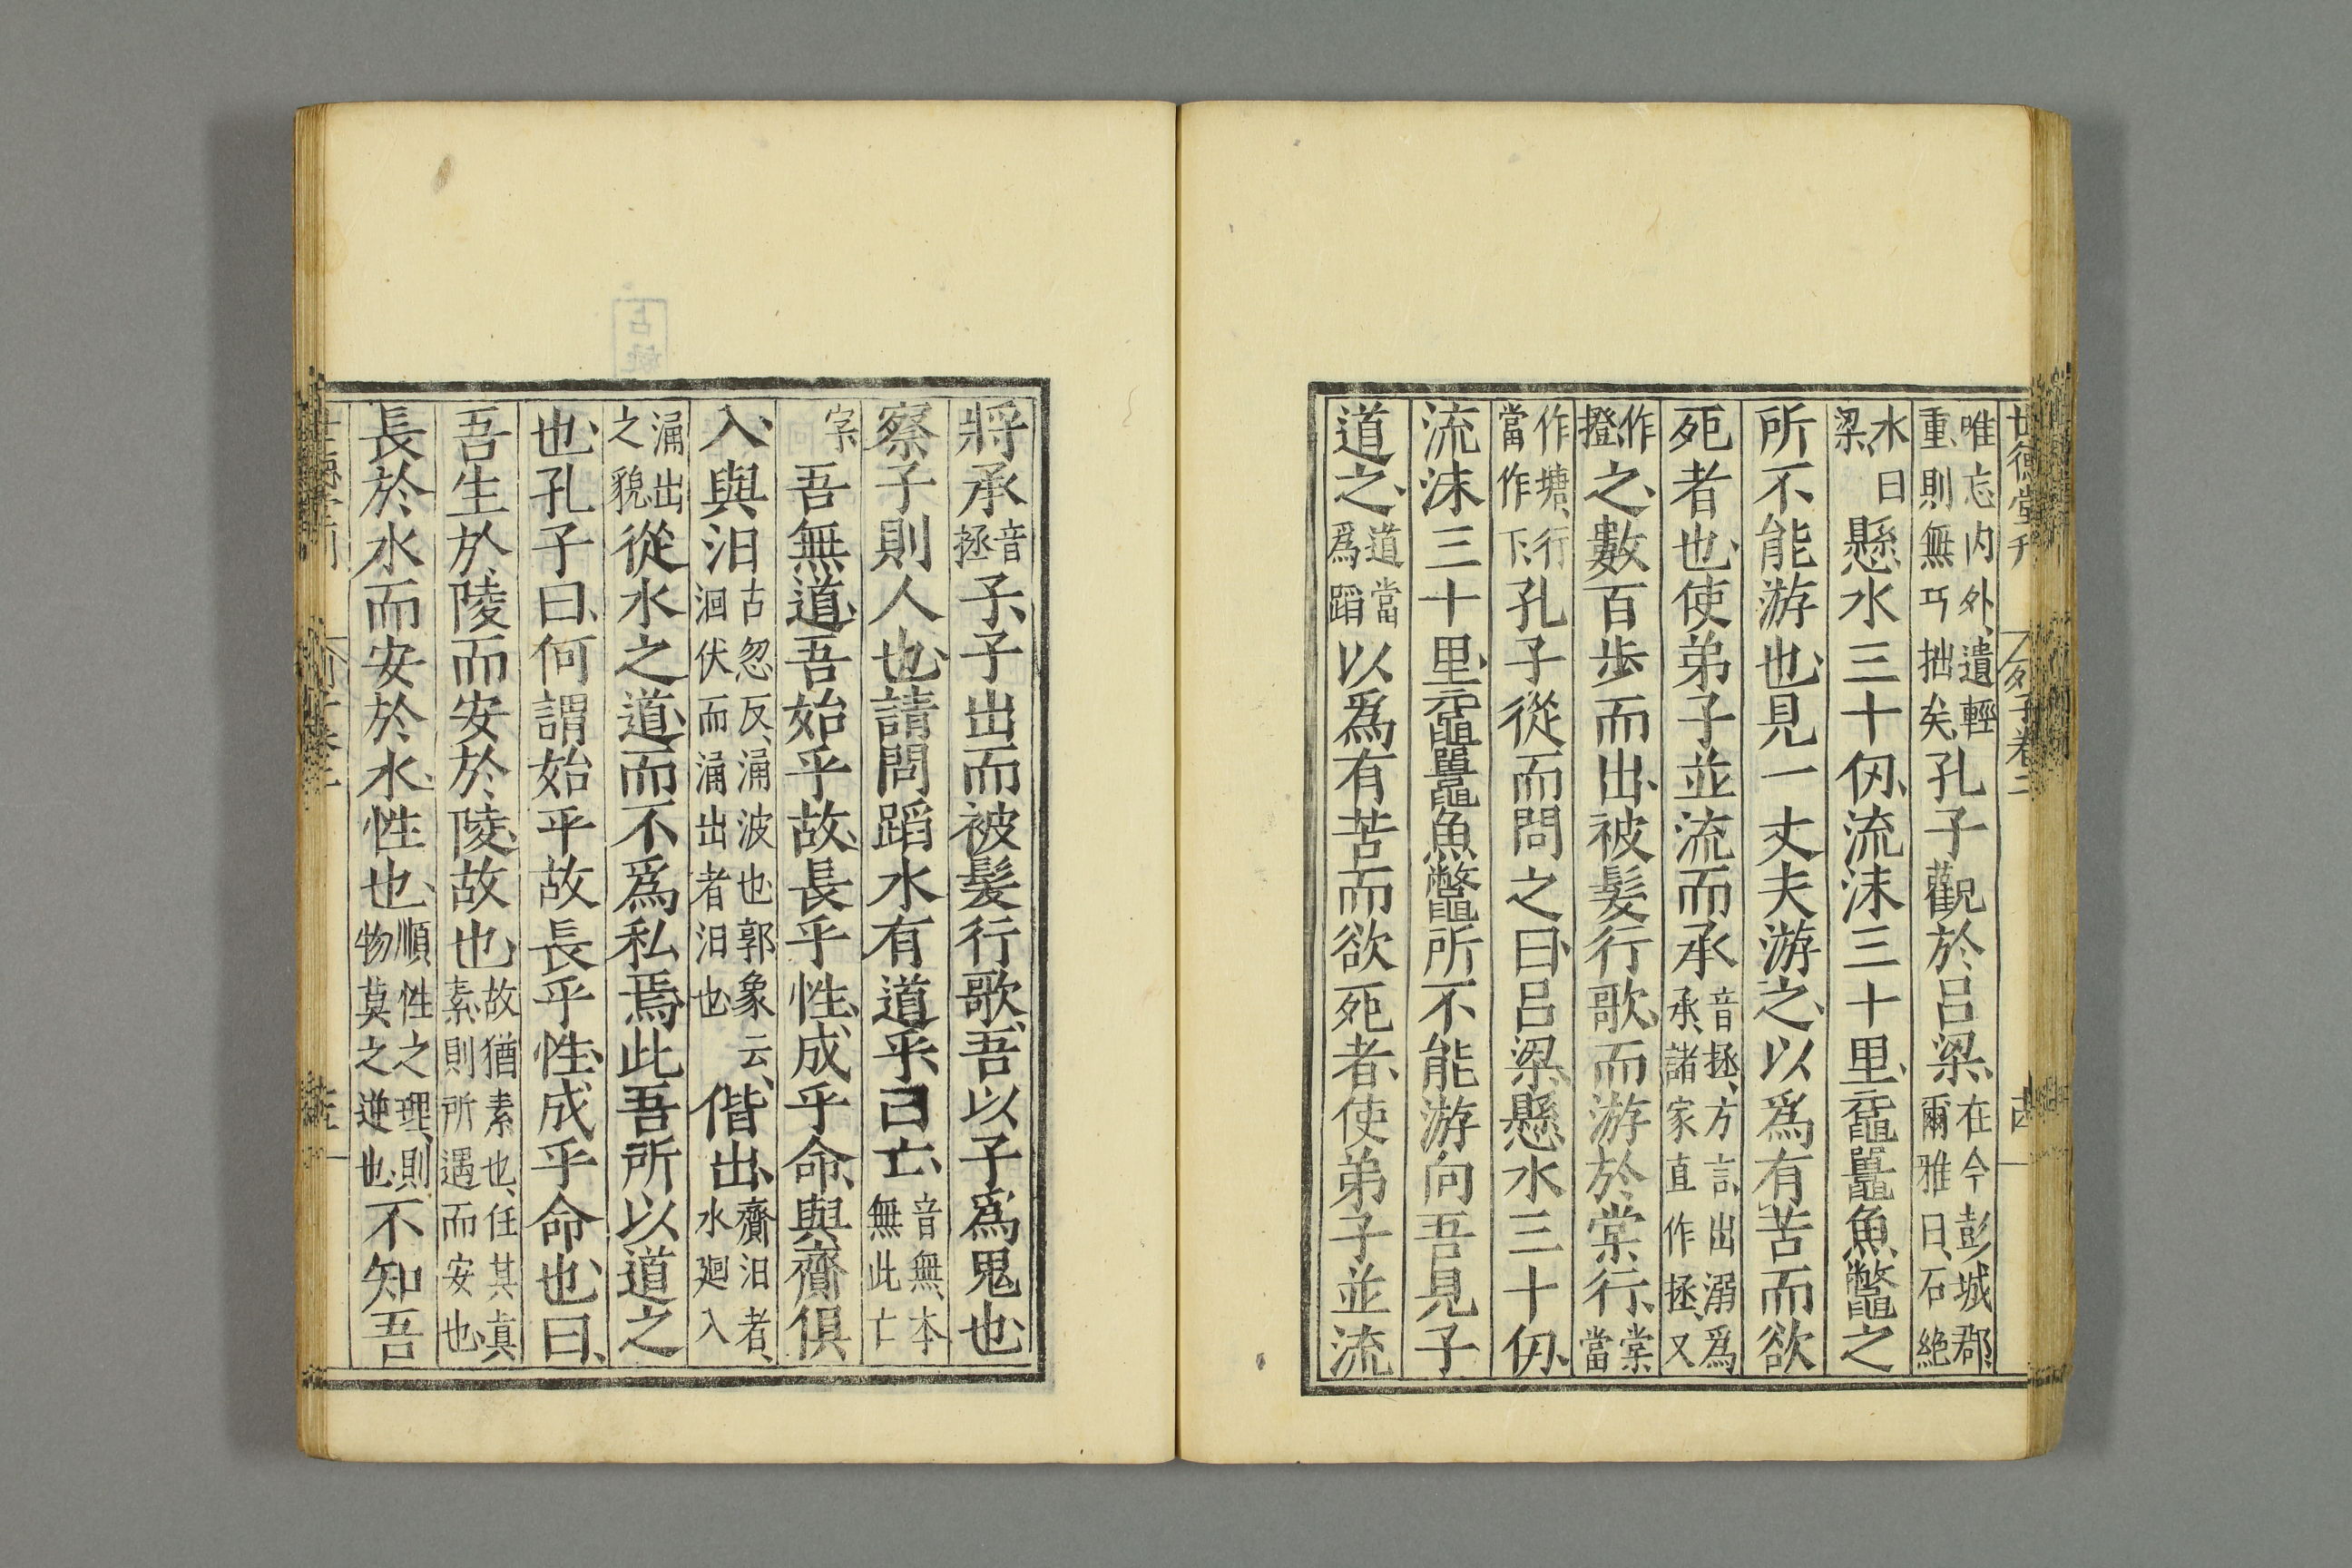 世德堂刊　列子卷二　十四
唯忘内外遺輕重則無巧拙矣、孔子觀於呂梁、在今彭城郡、爾雅曰、石絶
水曰梁、懸水三十仞、流沫三十里、黿鼉魚鼈之
所不能游也、見一丈夫游之、以爲有苦而欲
死者也、使弟子並流而承音拯、方言、出溺爲承、諸家直作拯、又
作撜、之、數百歩而出、被髮行歌、而游於棠行、棠當
作塘、行當作下、孔子從而問之曰、呂梁、懸水三十仞、
流沫三十里、黿鼉魚鼈所不能游、向吾見子
道之、道當爲蹈以爲有苦而欲死者、使弟子並流
將承音拯子、子出而被髮行歌、吾以子爲鬼也、
察子則人也、請問蹈水有道乎、曰亡、音無、本無此亡
字、吾無道、吾始乎故、長乎性、成乎命、與齎俱
入、與汨古忽反、涌波也、郭象云、洄伏而涌出者汨也、偕出、齎汨者、水廻入
涌出之貌從水之道、而不爲私焉、此吾所以道之
也、孔子曰、何謂始乎故長乎性、成乎命也、曰、
吾生於陵而安於陵、故也、故猶素也、任其真素、則所遇而安也、
長於水而安於水、性也、順性之理、則物莫之逆也、不知吾